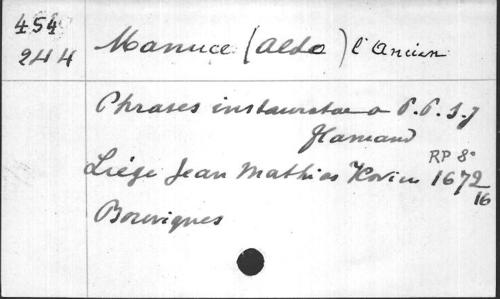 454
244
Manuce (Aldo) l'Ancien
Phrases instauratae a P.P.S.J
flamand
RP 8°
Liége Jean Mathias Hovius 1672
16
Bouvignes